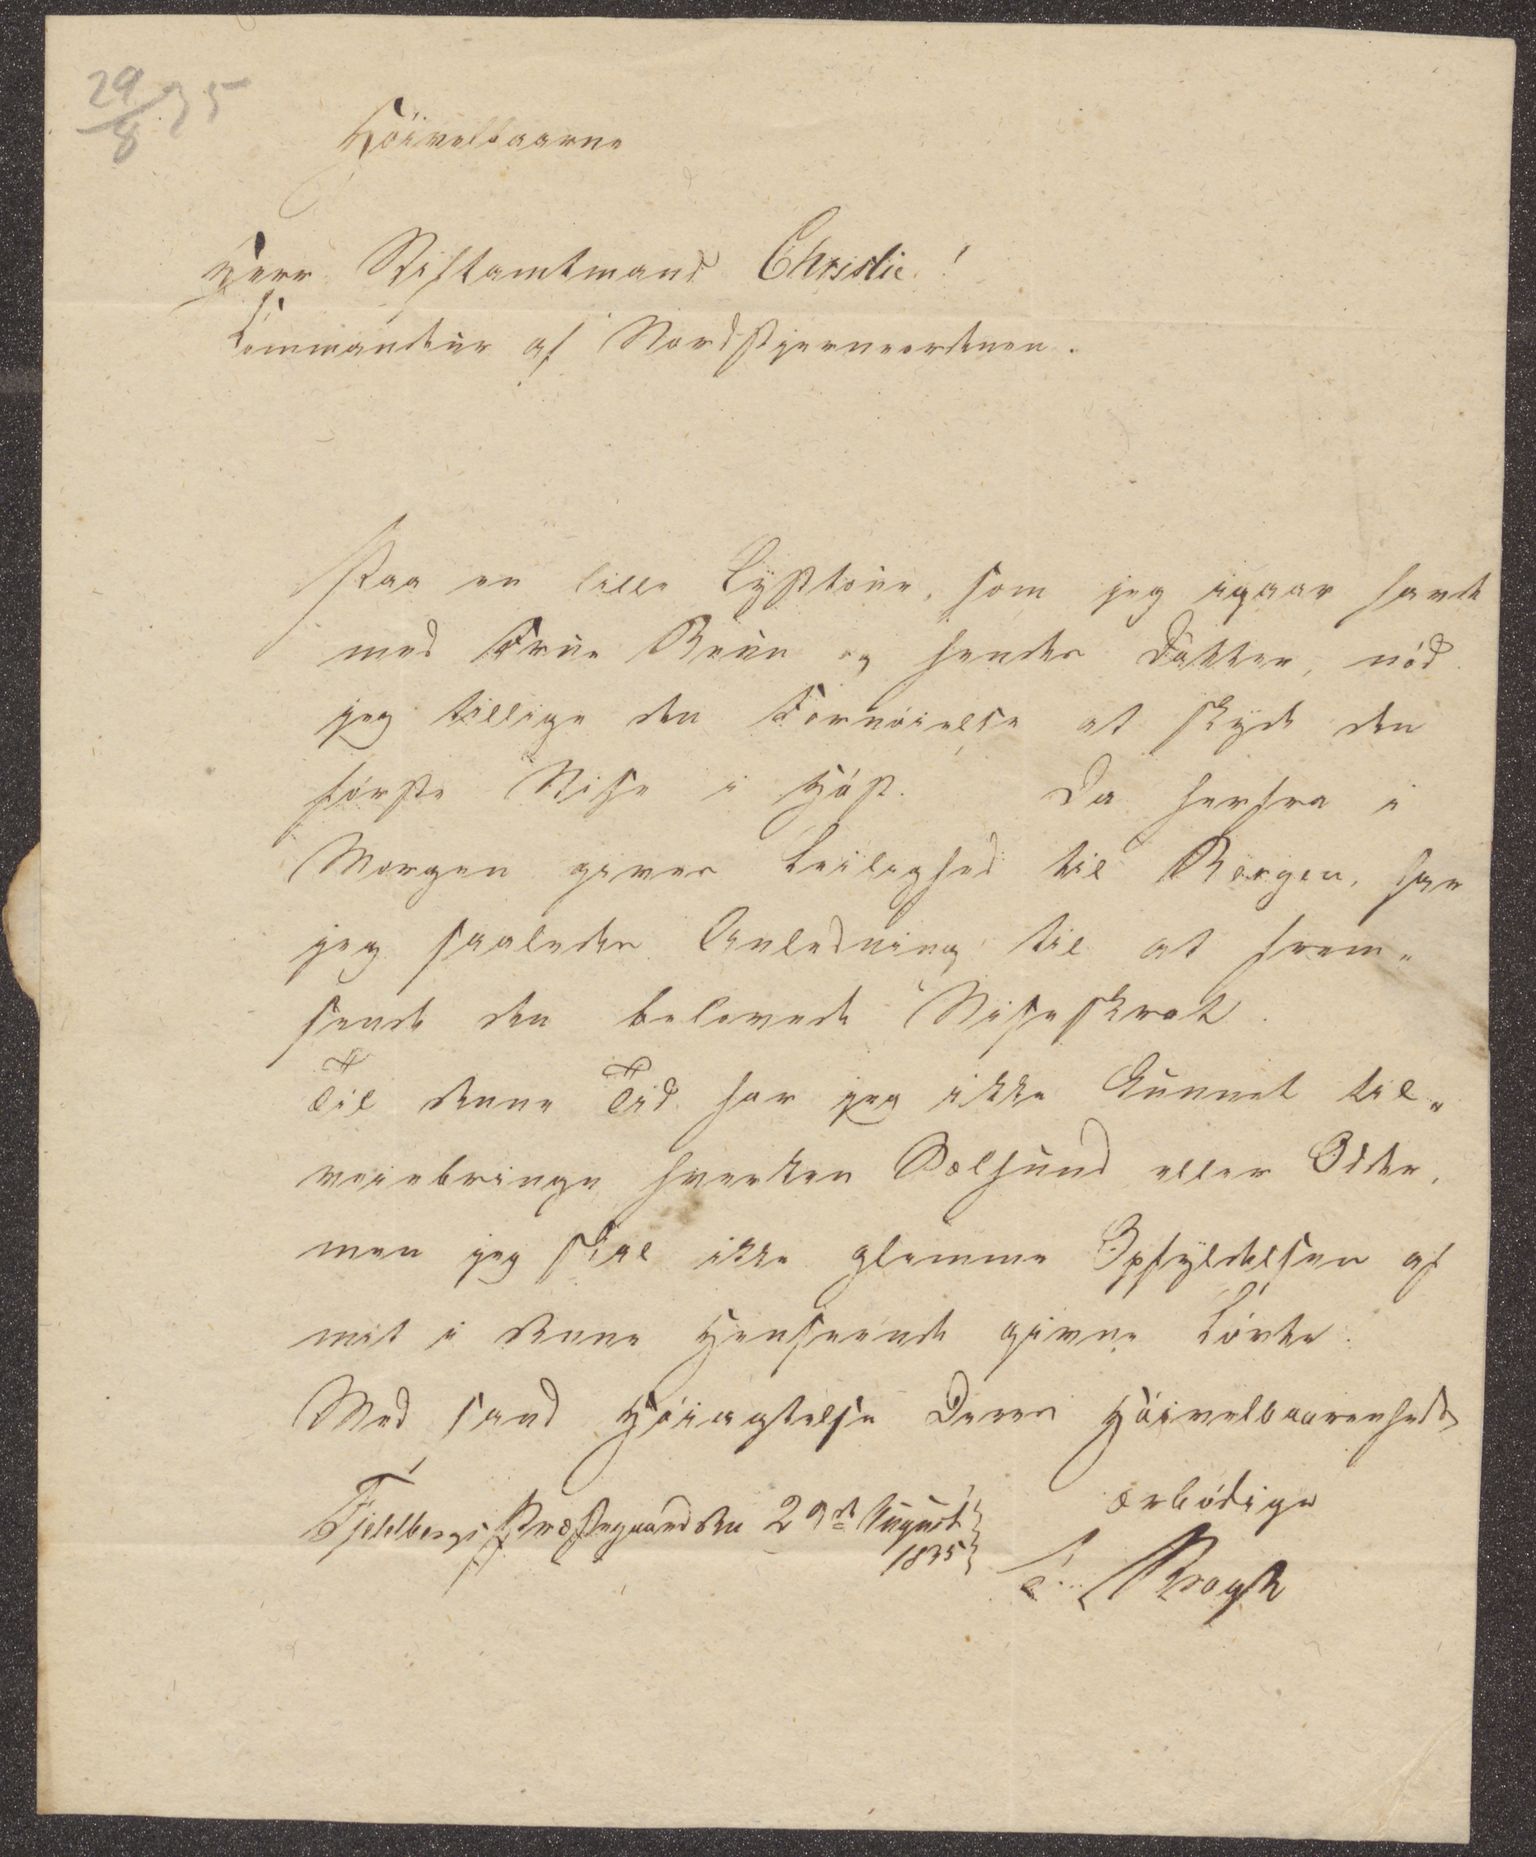 29/8 35
Høivelbaarne
Herr Stiftamtmand Christie!
Commandeur af Nordstjerneordenen.
Paa en lille Lysttour, som jeg igaar havde
med Frue Brun og hendes Datter, nød
jeg tillige den Fornøielse at skyde den
første Nise i Høst. Da herfra i
Morgen gives Leilighed til Bergen, har
jeg saaledes Anledning til at frem-
sende den belovede Niseskrot.
Til denne Tid har jeg ikke kunnet til-
veiebringe hverken Sælhund eller Odder,
men jeg skal ikke glemme Opfyldelsen af
mit i denne Henseende givne Løvte.
Med sand Høiagtelse Deres Høivelbaarenheds
ærbødige
Fjeldbergs Præstegaard den 29de August
1835
Krogh